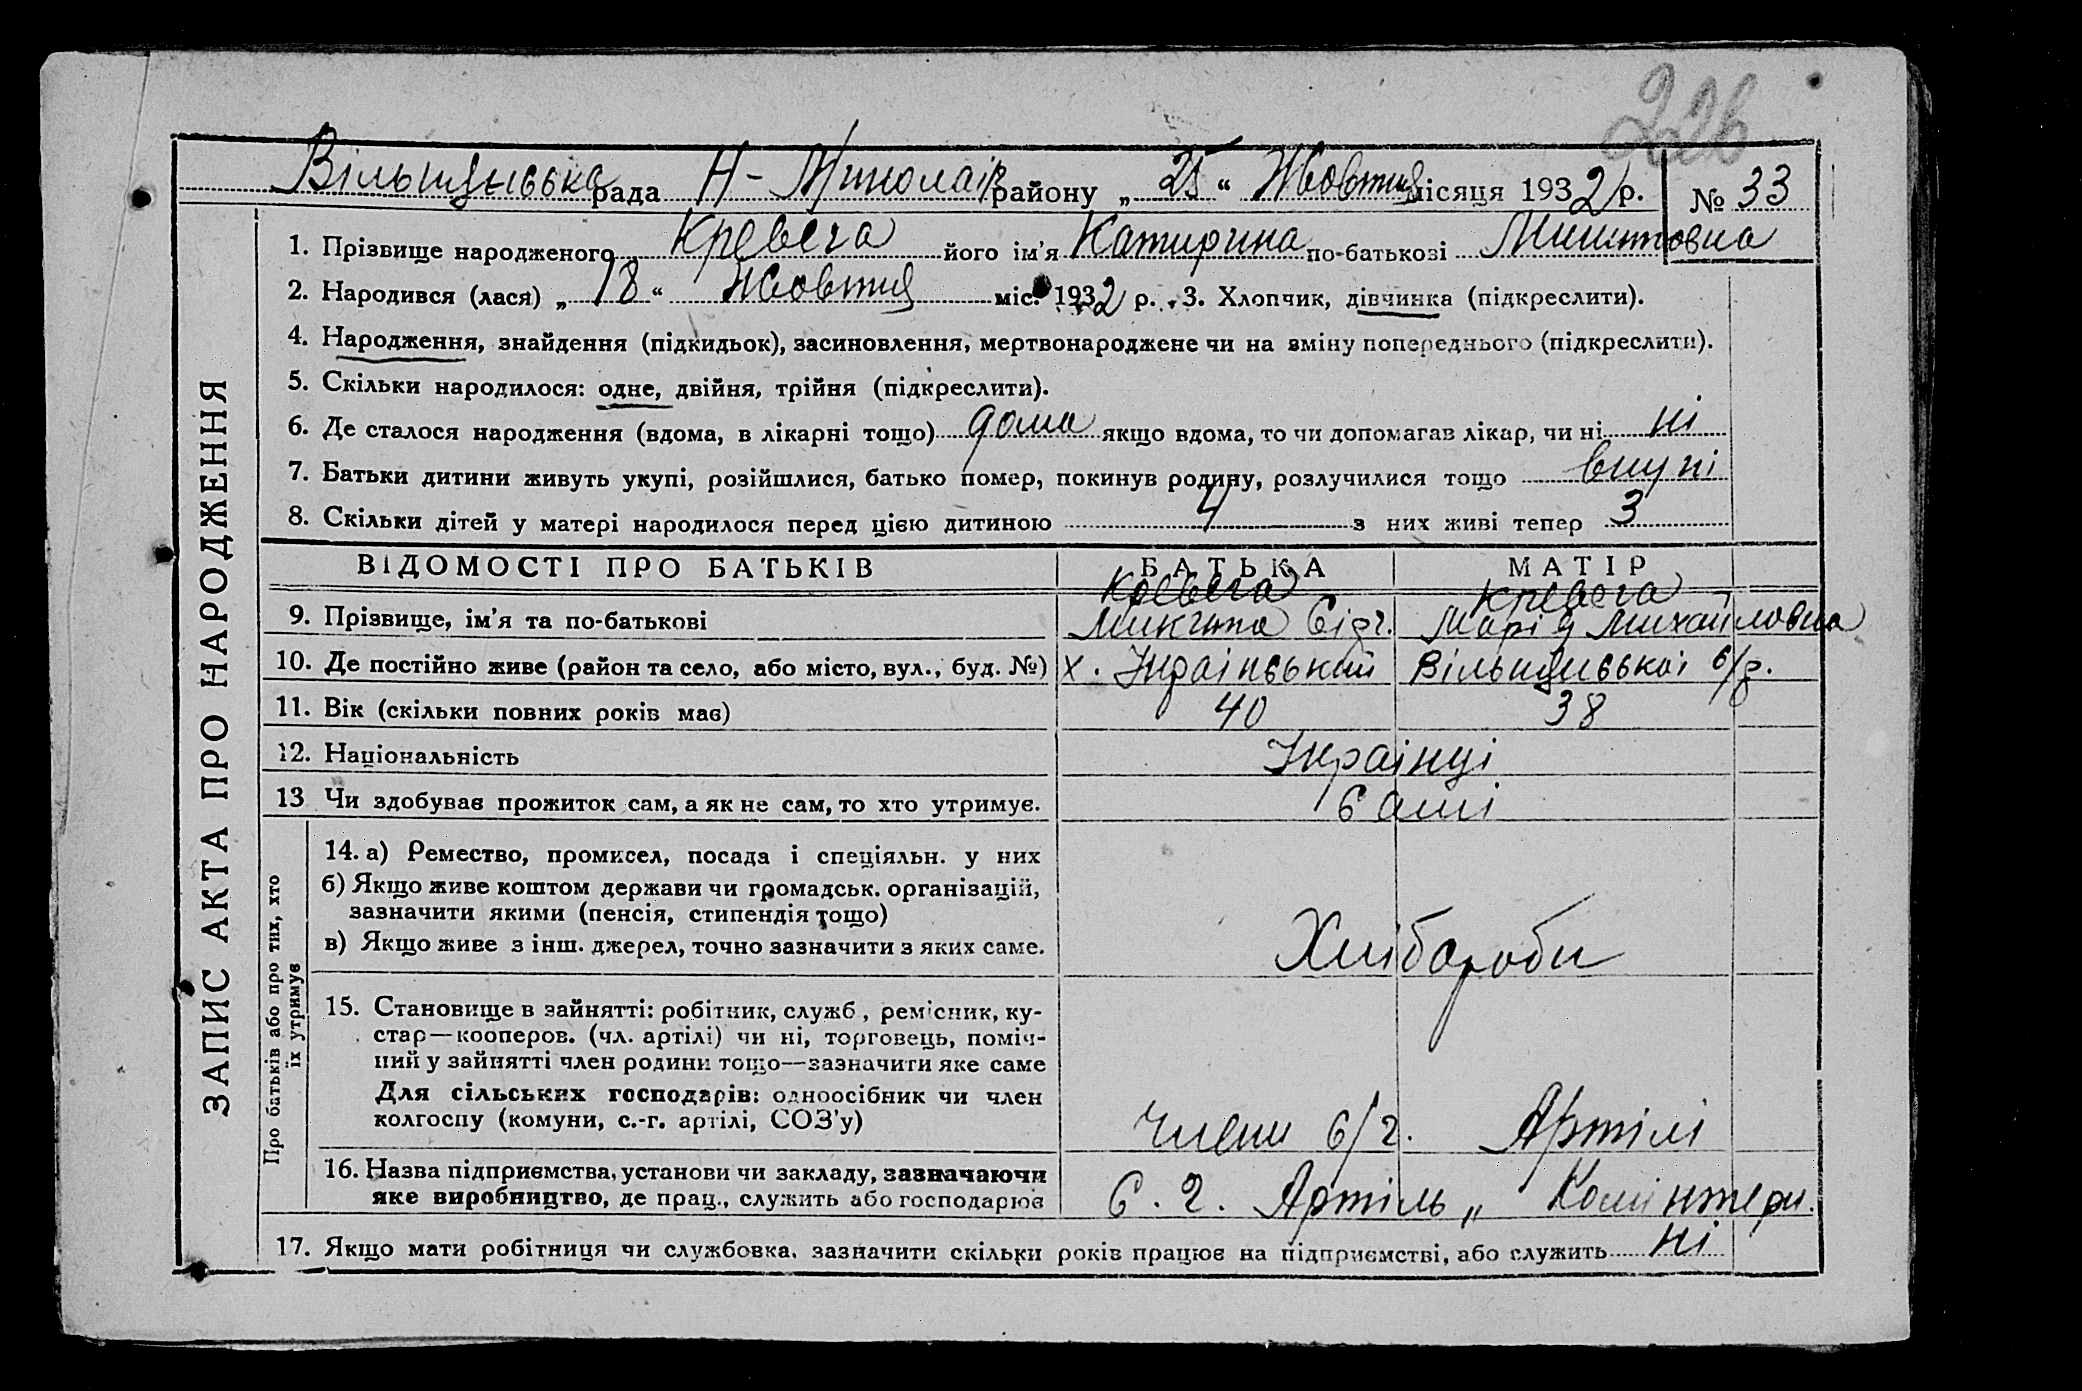 226
Вільшанська рада Н-Миколаїв району „ 25 “ Жовтня місяця 1932 р. № 33
ЗАПИС АКТА ПРО НАРОДЖЕННЯ
1. Прізвище народженого Кревега його ім’я Катирина по-батькові Микитовна
2. Народився (лася) „ 18 “ Жовтня міс. 1932 р. 3. Хлопчик, дівчинка (підкреслити).
4. Народження, знайдення (підкидьок), засиновлення, мертвонароджене чи на зміну попереднього (підкреслити).
5. Скільки народилося: одне, двійня, трійня (підкреслити).
6. Де сталося народження (вдома, в лікарні тощо) дома якщо вдома, то чи допомагав лікар, чи ні ні
7. Батьки дитини живуть укупі, розійшлися, батько помер, покинув родину, розлучилися тощо вкупі
8. Скільки дітей у матері народилося перед цією дитиною 4 з них живі тепер 3
ВІДОМОСТІ ПРО БАТЬКІВ БАТЬКА МАТІР
Кревега Кревега
9. Прізвище, ім’я та по-батькові Микита Марія Михайловна
10. Де постійно живе (район та село, або місто, вул., буд. №) х. Український с/р.
11. Вік (скільки повних років має) 40 38
12. Національність Українці
13 Чи здобуває прожиток сам, а як не сам, то хто утримує. Самі
Про батьків або про тих, хто їх утримує
14. а) Ремество, промисел, посада і спеціяльн. у них
б) Якщо живе коштом держави чи громадськ. організацій,
зазначити якими (пенсія, стипендія тощо)
в) Якщо живе з інш. джерел, точно зазначити з яких саме.
Хлібороби
15. Становище в зайнятті: робітник, служб., ремісник, ку-
стар—кооперов. (чл. артілі) чи ні, торговець, поміч-
ний у зайнятті член родини тощо—зазначити яке саме
Для сільських господарів: одноосібник чи член
колгоспу (комуни, с.-г. артілі, СОЗ’у) Члени с/г. Артілі
16. Назва підприємства, установи чи закладу, зазначаючи
яке виробництво, де прац., служить або господарює С. г. Артіль „ Комінтерн.
17. Якщо мати робітниця чи службовка, зазначити скільки років працює на підприємстві, або служить ні